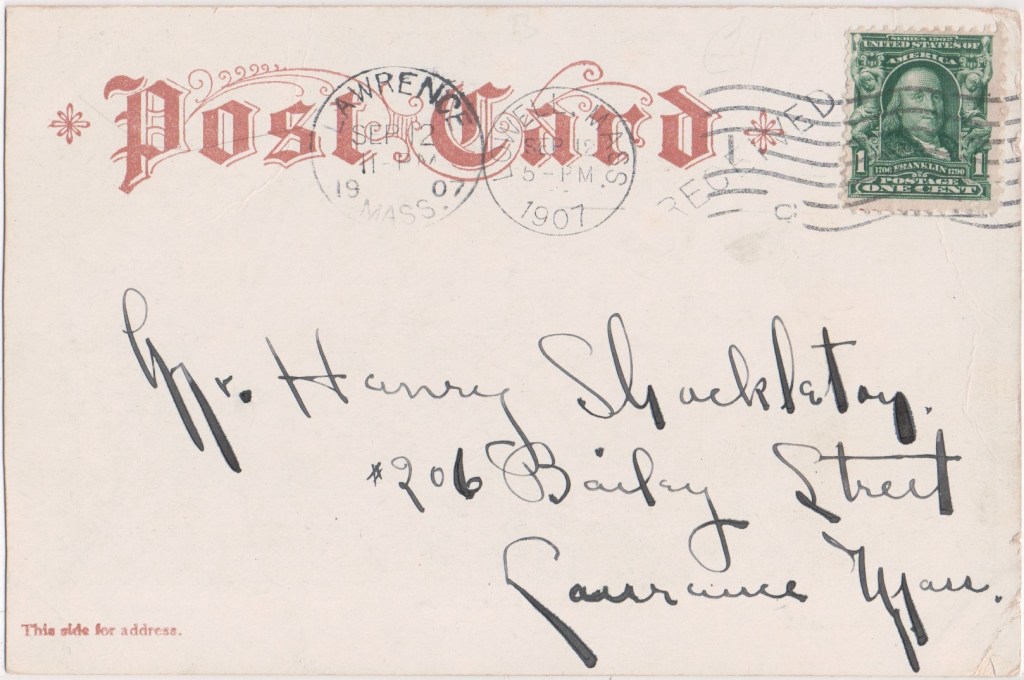 Post Card
LAWRENCE
SEP 12
11-PM
1907
MASS.
MASS
SEP 12
5-PM
1907
RECEIVED
SERIES 1902
UNITED STATES OF
AMERICA
1 1
1706 FRANKLIN 1790
POSTAGE
ONE CENT
Mr. Henry Shackleton.
#206 Bailey Street
Lawrence Mass.
This side for address.